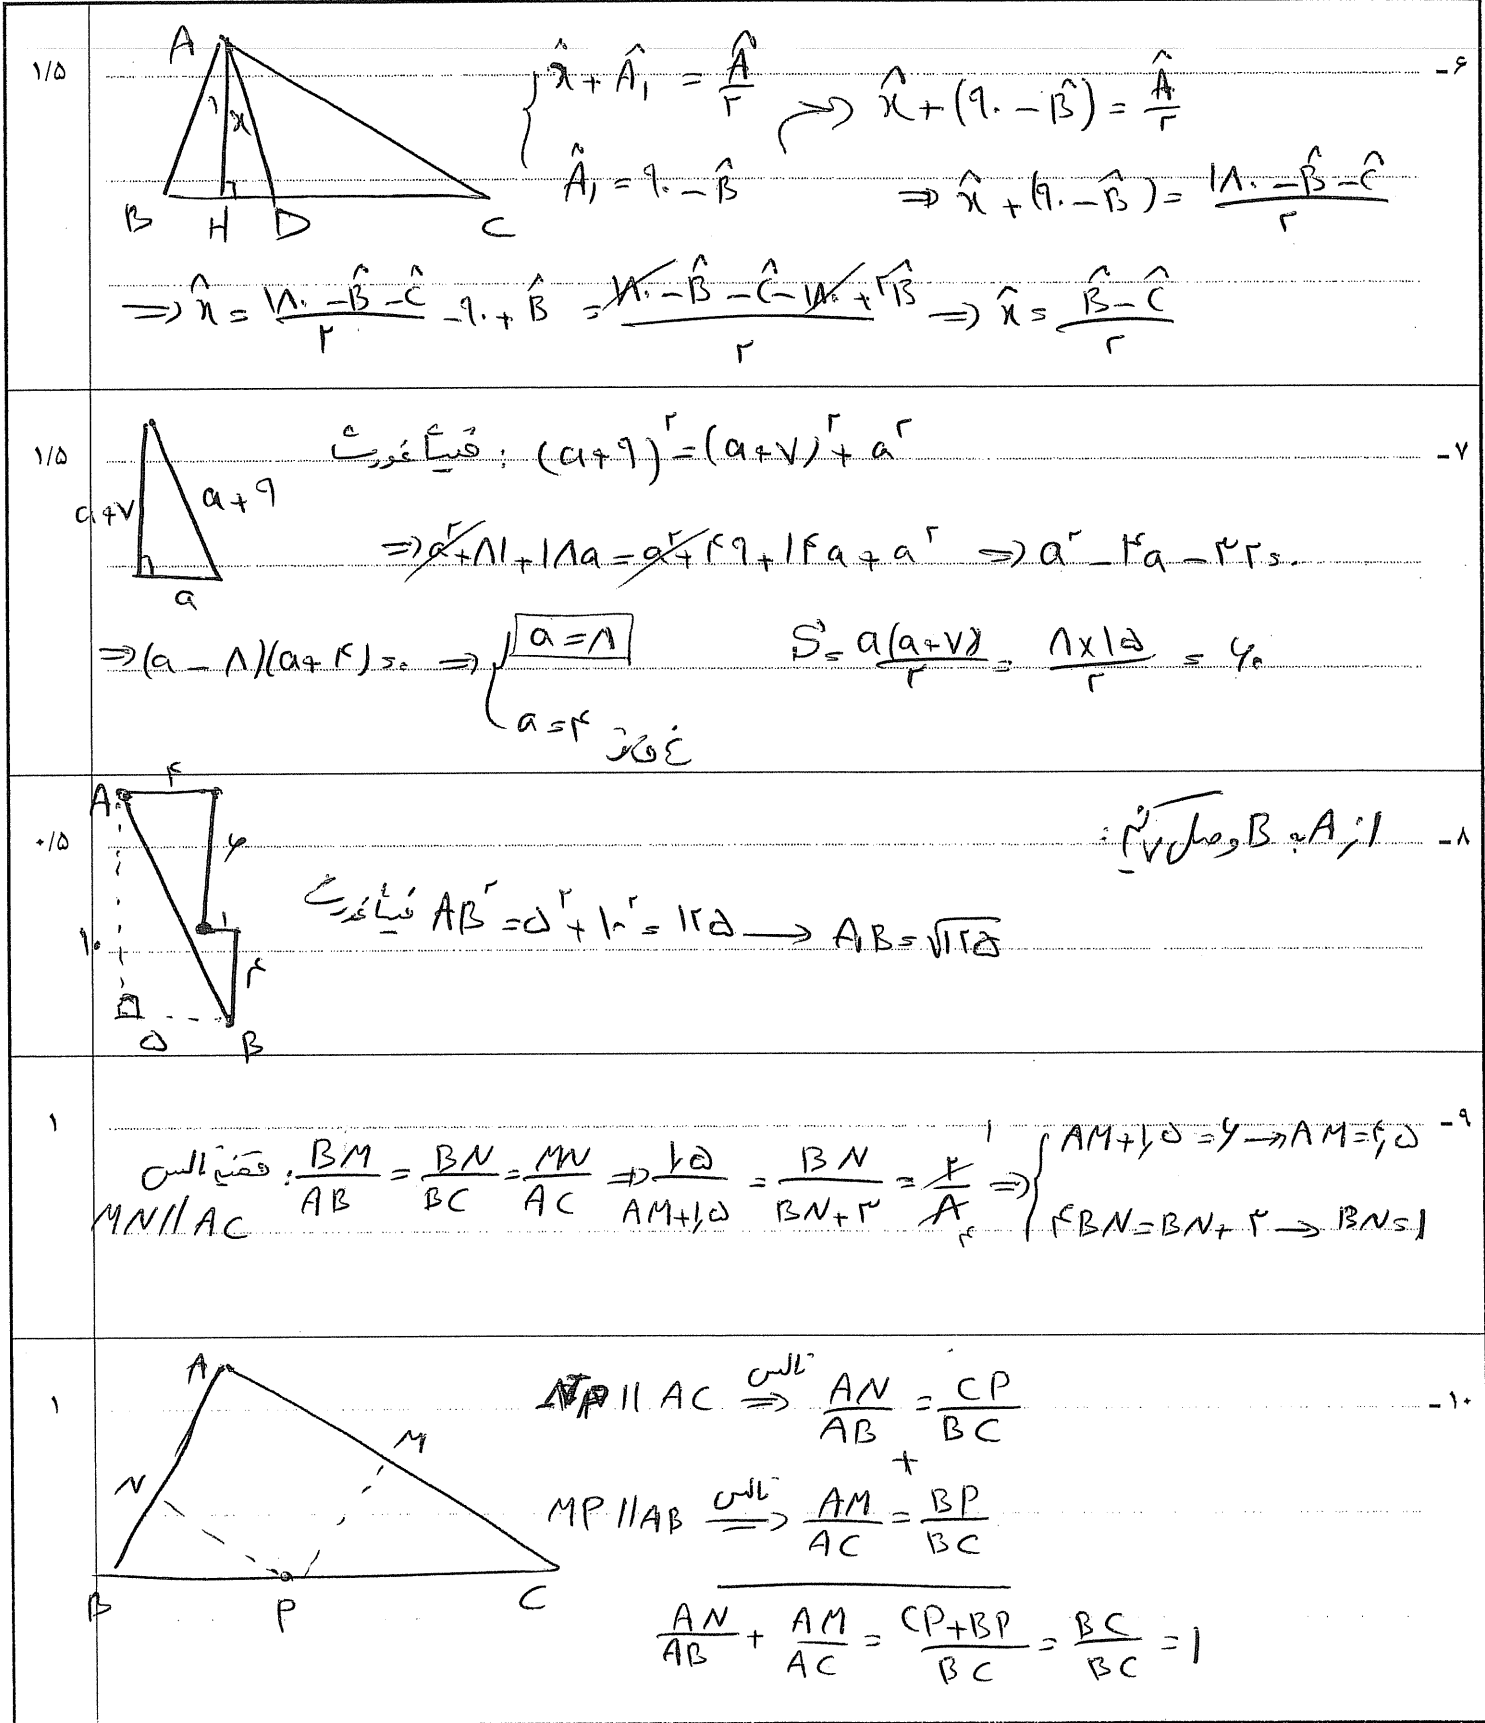 ۶- ۱/۵
A B H D C ۱ x
x̂ + Â₁ = Â/۲
Â₁ = ۹۰ - B̂
⇒ x̂ + (۹۰ - B̂) = Â/۲
⇒ x̂ + (۹۰ - B̂) = (۱۸۰ - B̂ - Ĉ)/۲
⇒ x̂ = (۱۸۰ - B̂ - Ĉ)/۲ - ۹۰ + B̂ = (۱۸۰ - B̂ - Ĉ - ۱۸۰ + ۲B̂)/۲ ⇒ x̂ = (B̂ - Ĉ)/۲
۷- ۱/۵
a+۷ a+۹ a
فیثاغورث : (a+۹)^۲ = (a+۷)^۲ + a^۲
⇒ a^۲ + ۸۱ + ۱۸a = a^۲ + ۴۹ + ۱۴a + a^۲ ⇒ a^۲ - ۴a - ۳۲ = ۰
⇒ (a - ۸)(a + ۴) = ۰ ⇒ a = ۸ S = a(a+۷)/۲ = ۸×۱۵/۲ = ۶۰
a = ۴ غ ق‌ق
۸- ۰/۵
A ۴ ۶ ۱ ۴ ۱۰ ۵ B
از A به B وصل می‌کنیم :
فیثاغورث AB^۲ = ۵^۲ + ۱۰^۲ = ۱۲۵ → AB = √۱۲۵
۹- ۱
قضیه تالس : BM/AB = BN/BC = MN/AC ⇒ ۱,۵/(AM+۱,۵) = BN/(BN+۳) = ۲/۸ ۱ ۴ ⇒ AM+۱,۵ = ۶ → AM = ۴,۵
MN // AC ۴BN = BN + ۳ → BN = ۱
۱۰- ۱
A N M B P C
NP || AC تالس ⇒ AN/AB = CP/BC
+
MP // AB تالس ⇒ AM/AC = BP/BC
AN/AB + AM/AC = (CP+BP)/BC = BC/BC = ۱